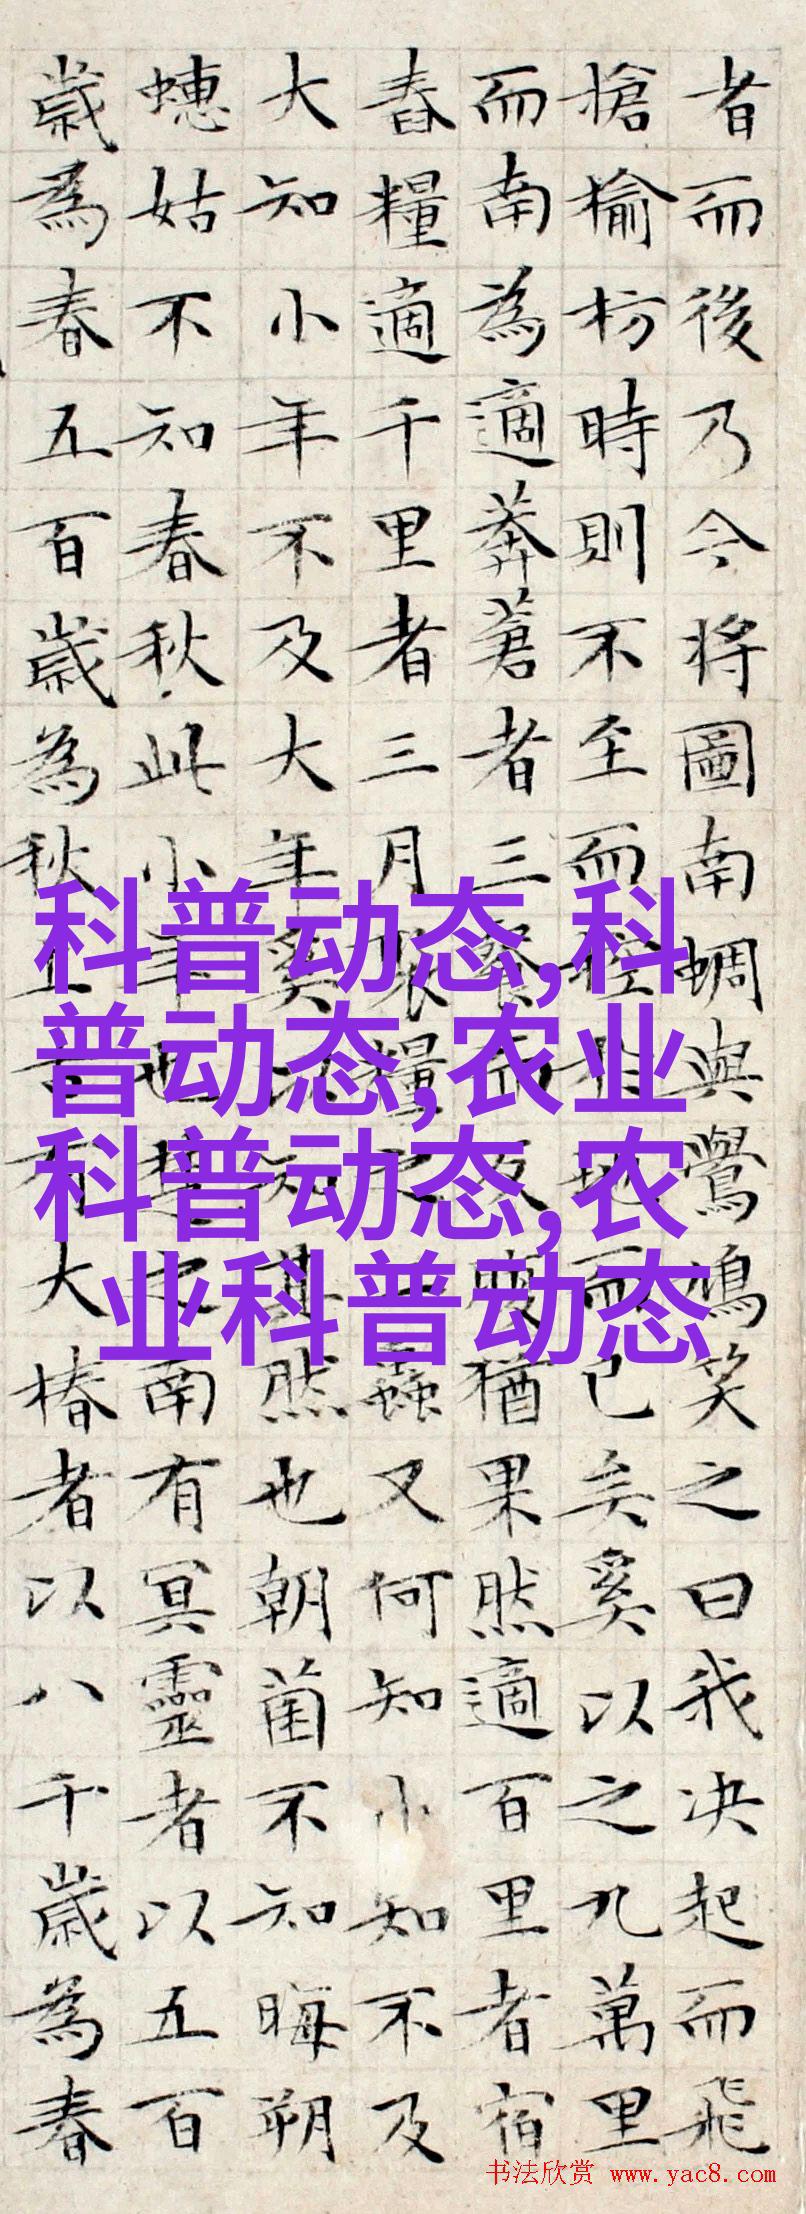 者而後乃今將圖南蜩與鷽鳩笑之曰我决起而飛
搶榆枋時則不至而控於地而已矣奚以之九萬里
而南為適莽蒼者三餐而反腹猶果然適百里者宿
舂糧適千里者三月聚糧之二蟲又何知小知不及
大知小年不及大年奚以知其然也朝菌不知晦朔
蟪姑不知春秋此小年也楚之南有冥靈者以五百
歲為春五百歲為秋上古有大椿者以八千歲為春
科普动态,科
普动态,农业
科普动态,农
业科普动态
书法欣赏 www.yac8.com